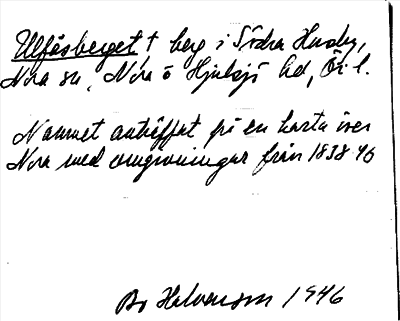 Ulfåsberget, † berg i Södra Husby,
Nora sn, Nora o Hjulsjö hd, Ör. l.
Namnet anträffat på en karta över
Nora med omgivningar från 1838-46
Bo Halvarson 1946